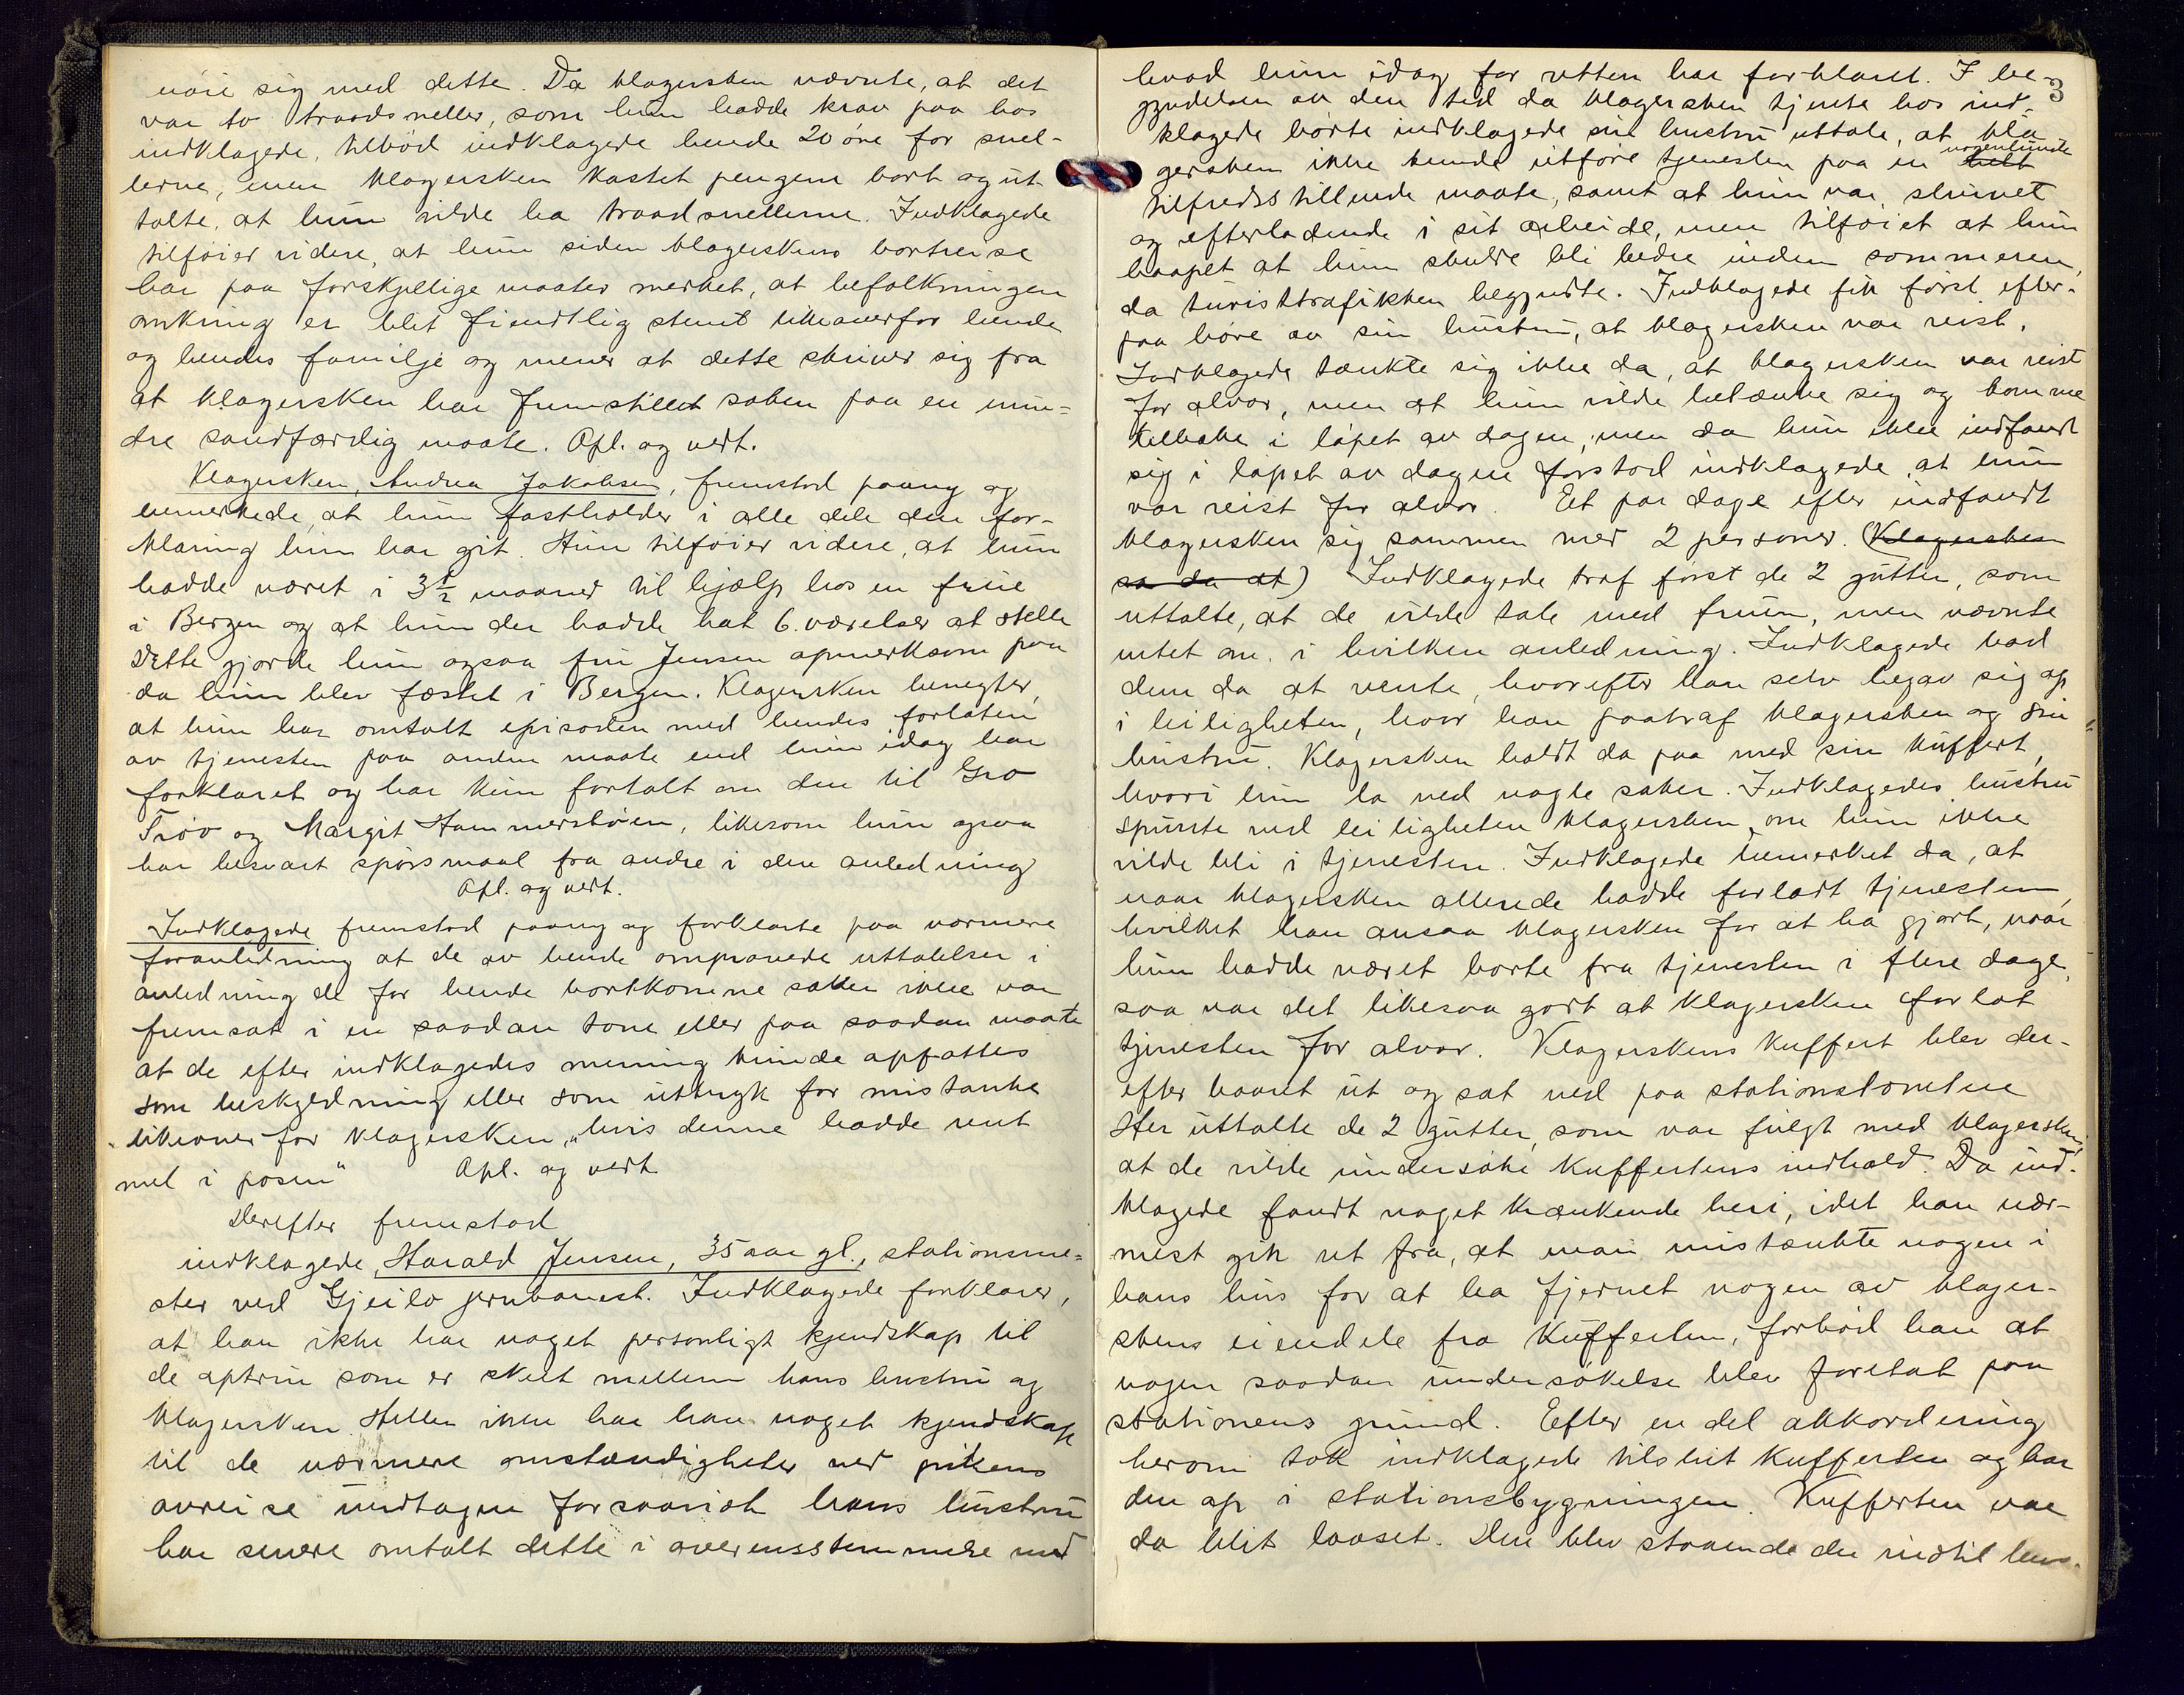 nöie sig med dette. Da klagersken nævnte, at det
var to traadsneller, som hun hadde krav paa hos
indklagede, tilbød indklagede hende 20 øre for snel-
lerne, men klagersken kastet pengene bort og ut-
talte, at hun vilde ha traadsnellerne. Indklagede
tilføier videre, at hun siden klagerskens bortreise
har paa forskjellige maater merket, at befolkningen
omkring er blit fiendtlig stemt likeoverfor hende
og hendes familje og mener at dette skriver sig fra
at klagersken har fremstillet saken paa en min-
dre sandfærdig maate. Opl. og vedt.
Klagersken, Andrea Jakobsen, fremstod paany og
bemerkede, at hun fastholder i alle dele den for-
klaring hun har git. Hun tilføier videre, at hun
hadde været i 3 1/2 maaned til hjælp hos en frue
i Bergen og at hun der hadde hat 6 værelser at stelle
Dette gjorde hun ogsaa fru Jensen opmerksom paa
da hun blev fæstet i Bergen. Klagersken benegter,
at hun har omtalt episoden med hendes forlaten
av tjenesten paa anden maate end hun idag har
forklaret og har kun fortalt om den til Gro
Trøo og Margit Hammersbøen, likesom hun ogsaa
har besvart spørsmaal fra andre i den anledning
Opl. og vedt.
Indklagede fremstod paany og forklarte paa nærmere
foranledning at de av hende omprøvede uttalelser i
anledning de for hende bortkomne saker ikke var
fremsat i en saadan tone eller paa saadan maate
at de efter indklagedes mening kunde opfattes
som beskyldning eller som uttryk for mistanke
likeover for klagersken, "hvis denne hadde rent
mel i posen" Opl. og vedt.
Derefter fremstod
indklagede, Harald Jensen, 35 aar gl., stationsme-
ster ved Gjeilo jernbanest. Indklagede forklarer,
at han ikke har noget personligt kjendskap til
de optrin som er skeet mellem hans hustru og
klagersken. Heller ikke har han noget kjendskap
til de nærmere omstændigheter ved pikens
avreise undtagen forsaavidt hans hustru
har senere omtalt dette i overensstemmelse med
3
hvad hun idag for retten har forklaret. I be-
gyndelsen av den tid da klagersken tjente hos ind-
klagede hørte indklagede sin hustru uttale, at kla
gersken ikke kunde utføre tjenesten paa en helt nogenlunde
tilfredsstillende maate, samt at hun var skjuvet
og efterladende i sit arbeide, men tilføiet at hun
haapet at hun skulde bli bedre inden sommeren,
da turisttrafikken begyndte. Indklagede fik først efter-
paa høre av sin hustru, at klagersken var reist.
Indklagede tænkte sig ikke da, at klagersken var reist
for alvor, men at hun vilde betænke sig og komme
tilbake i løpet av dagen, men da hun ikke indfandt
sig i løpet av dagen forstod indklagede at hun
var reist for alvor. Et par dage efter indfandt
klagersken sig sammen med 2 personer. (Klagersken
sa da at) Indklagede traf først de 2 gutter, som
uttalte, at de vilde tale med fruen, men nævnte
intet om i hvilken anledning. Indklagede bad
dem da at vente, hvorefter han selv begav sig op
i leiligheten, hvor han paatraf klagersken og sin
hustru. Klagersken holdt da paa med sin kuffert,
hvori hun la ned nogle saker. Indklagedes hustru
spurte ved leiligheten klagersken om hun ikke
vilde bli i tjenesten. Indklagede bemerket da, at
naar klagersken allerede hadde forladt tjenesten
hvilket han ansaa klagersken for at ha gjort, naar
hun hadde været borte fra tjenesten i flere dage,
saa var det likesaa godt at klagersken forlot
tjenesten for alvor. Klagerskens kuffert blev der-
efter baaret ut og sat ned paa stationstomten
Her uttalte de 2 gutter, som var fulgt med klagersken,
at de vilde undersøke kuffertens indhold. Da ind-
klagede fandt noget krænkende heri, idet han nær-
mest gik ut fra, at man mistænkte nogen i
hans hus for at ha fjernet nogen av klager-
skens eiendele fra kufferten, forbød han at
nogen saadan undersøkelse blev foretat paa
stationens grund. Efter en del akkordering
herom tok indklagede tilslut kufferten og bar
den op i stationsbygningen. Kufferten var
da blit laaset. Den blev staaende der indtil lens-